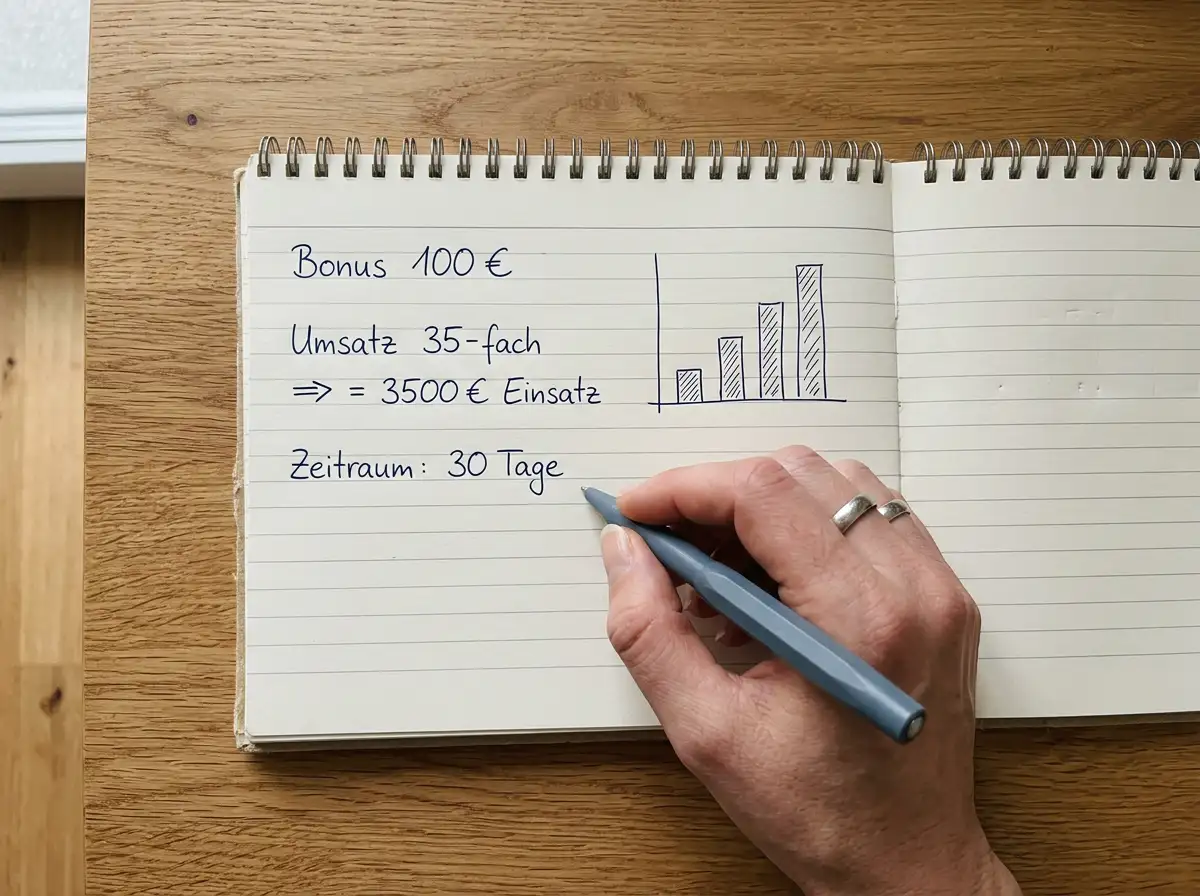 Bonus 100 €
Umsatz 35-fach
⇒ = 3500 € Einsatz
Zeitraum: 30 Tage